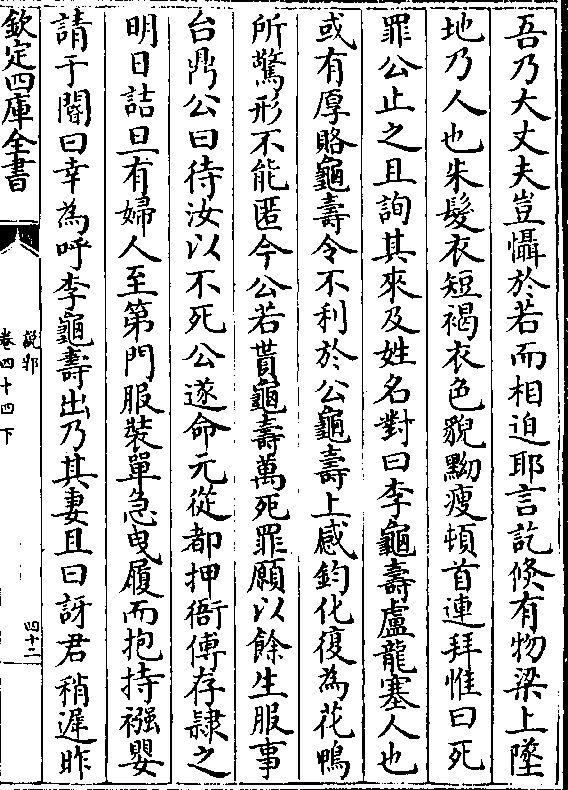 吾乃大丈夫豈懾於若而相迫耶言訖倏有物梁上墜
地乃人也朱髮衣短褐衣色貌黝瘦頓首連拜惟曰死
罪公止之且詢其來及姓名對曰李龜壽盧龍塞人也
或有厚賂龜壽令不利於公龜壽上感鈞化復為花鴨
所驚形不能匿今公若貰龜壽萬死罪願以餘生服事
台鼎公曰待汝以不死公遂命元從都押衙傅存隷之
明日詰旦有婦人至第門服裝單急曳履而抱持襁嬰
請于閽曰幸為呼李龜壽出乃其妻且曰訝君稍遲昨
欽定四庫全書
說郛
卷四十四下
四十二